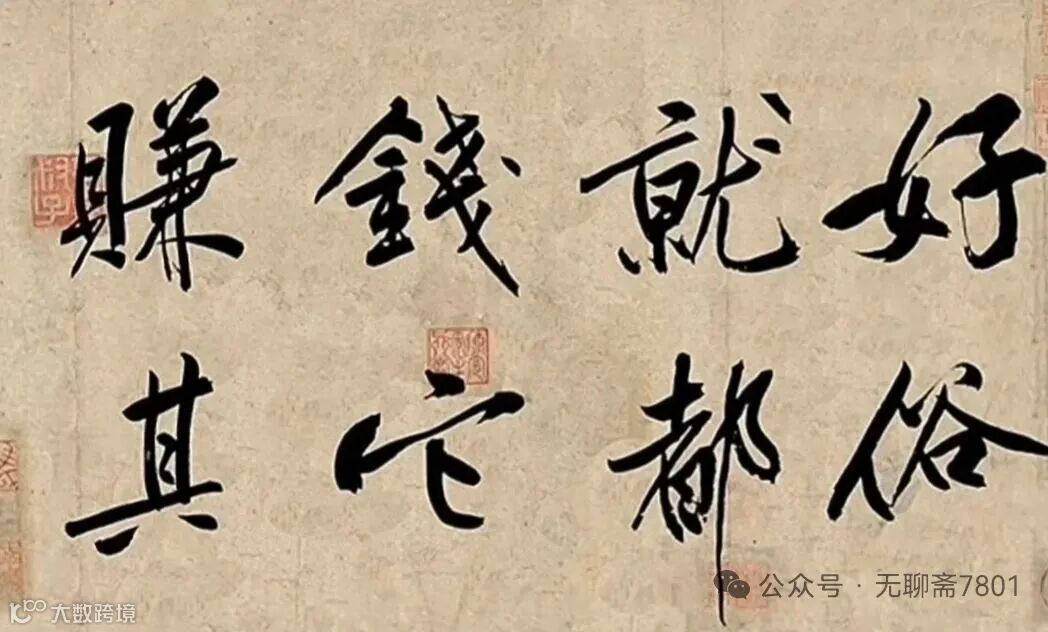 賺錢就好
其它都俗
公众号 · 无聊斋7801
大数跨境